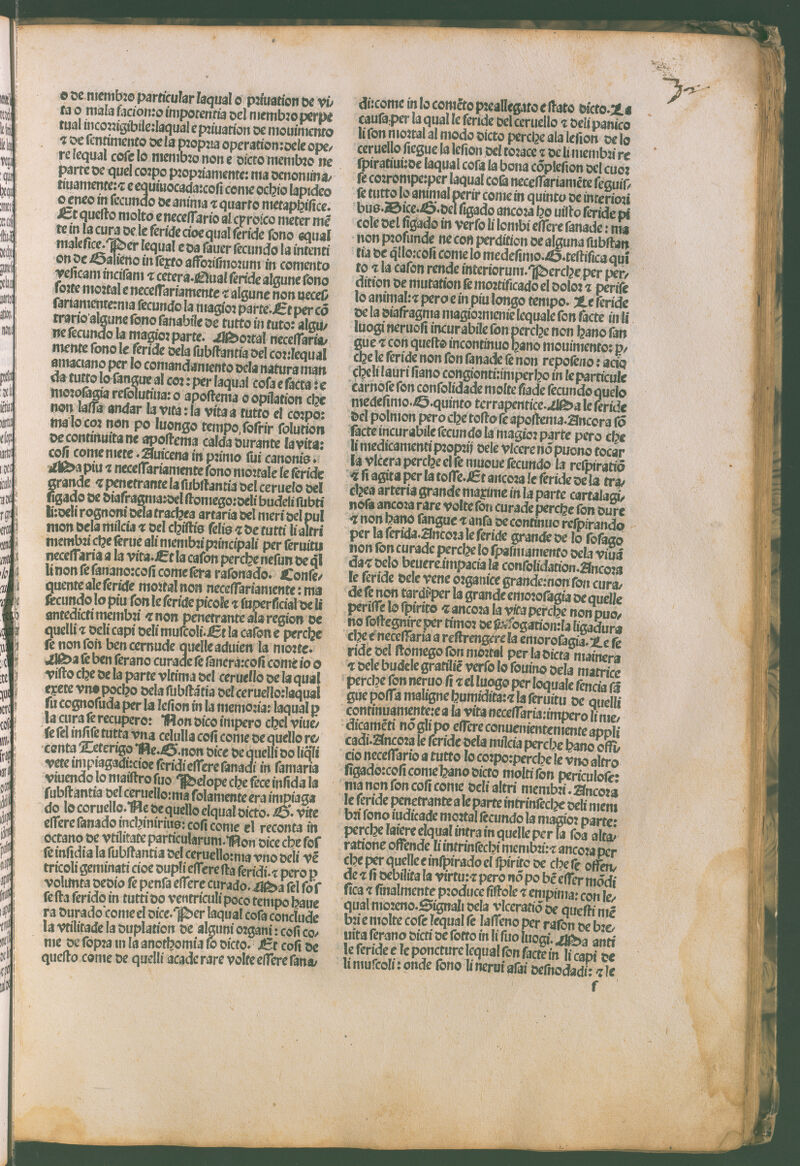 o de membro particular laqual o priuation de vi/
ta o mala facion:o impotentia del membro perpe
tual incorrigibile:laqual e priuation de mouimento
⁊ de sentimento de la propria operation:dele ope/
re lequal cose lo membro non e dicto membro ne
parte de quel corpo propriamente: ma denomina/
tiuamente:⁊ e equiuocada:cosi come ochio lapideo
o eneo in secundo de anima ⁊ quarto metaphisice.
Et questo molto e necessario al cyroico meter mẽ
te in la cura de le feride cioe qual feride sono equal
malefice. Per lequal e da sauer secundo la intenti
on de Galieno in sexto afforismorum in comento
vesicam incisam ⁊ cetera. Qual feride algune sono
forte mortal e necessariamente ⁊ algune non neces/
sariamente:ma secundo la magior parte. Et per cõ
trario algune sono sanabile de tutto in tuto: algu/
ne secundo la magior parte. Mortal necessaria/
mente sono le feride de la substantia del cor:lequal
amaciano per lo comandamento dela natura man
da tutto lo sangue al cor: per laqual cosa e facta : e
morosagia resolutiua: o apostema o opilation che
non lassa andar la vita: la vita a tutto el corpo:
ma lo cor non po luongo tempo soffrir solution
de continuita ne apostema calda durante la vita:
cosi come mete . Auicena in primo sui canonis.
Ma piu ⁊ necessariamente sono mortale le feride
grande ⁊ penetrante la substantia del ceruelo del
figado de diafragma:del stomego:deli budeli subti
li:deli rognoni dela trachea artaria del meri del pul
mon dela milcia ⁊ del chistis felis ⁊ de tutti li altri
membri che serue ali membri principali per seruitu
necessaria a la vita. Et la cason perche nesun de q̃l
li non se sanano:cosi come sera rasonado. Conse/
quente ale feride mortal non necessariamente : ma
secundo lo piu son le feride picole ⁊ superficial de li
antedicti membri ⁊ non penetrante ala region de
quelli ⁊ deli capi deli muscoli. Et la cason e perche
se non son ben cernude quelle aduien la morte.
Ma se ben serano curade se sanera:cosi come io o
visto che de la parte vltima del ceruello de la qual
exete vno pocho dela substãtia del ceruello:laqual
fu cognosuda per la lesion in la memoria: laqual p̱
la cura se recupero: Non dico impero chel viue/
se sel infise tutta vna celulla cosi come de quello re/
conta Teterigo Ne. G. non dice de quelli do liq̃li
vete impiagadi:cioe feridi essere sanadi in samaria
viuendo lo maistro suo Pelope che fece infida la
substantia del ceruello:ma solamente era impiaga
do lo coruello. Ne de quello elqual dicto. G. vite
essere sanado inchinirius: cosi come el reconta in
octano de vtilitate particularum. Non dice che fos
se infidia la substantia del ceruello:ma vno deli vẽ
tricoli geminati cioe dupli essere sta feridi.⁊ pero p̱
volunta dedio se pensa essere curado. Ma sel fos
se sta ferido in tutti do ventriculi poco tempo haue
ra durado come el dice. Per laqual cosa conclude
la vtilitade la duplation de alguni organi : cosi co/
me de sopra in la anothomia fo dicto. Et cosi de
questo come de quelli acade rare volte essere sana/
di:come in lo comẽto preallegato e stato dicto. La
causa.per la qual le feride del ceruello ⁊ deli panico
li son mortal al modo dicto perche ala lesion de lo
ceruello siegue la lesion del torace ⁊ de li membri re
spiratiui:de laqual cosa la bona cõplesion del cuor
se corrompe:per laqual cosa necessariamẽte seguis/
se tutto lo animal perir come in quinto de interiori
bus. Dice. G. del figado ancora ho uisto feride pi
cole del figado in verso li lombi essere sanade : ma
non profunde ne con perdition de alguna substan
tia de q̃llo:cosi come lo medesimo. G. testifica qui
to ⁊ la cason rende interiorum. Perche per per/
dition de mutation se mortificado el dolor ⁊ perise
lo animal:⁊ pero e in piu longo tempo. Le feride
de la diafragma magiormente lequale son facte in li
luogi neruosi incurabile son perche non hano san
gue ⁊ con questo incontinuo hano mouimento: p̱/
che le feride non son sanade se non reposeno : acio
che li lauri siano congionti:imperho in le particule
carnose son consolidade molte fiade secundo quelo
medesimo. G. quinto terrapentice. Ma le feride
del polmon pero che tosto se apostema. Ancora sõ
facte incurabile secundo la magior parte pero che
li medicamenti proprij dele vlcere nõ puono tocar
la vlcera perche el se muoue secundo la respiratiõ
⁊ si agita per la tosse. Et ancora le feride de la tra/
chea arteria grande maxime in la parte cartalagi/
nosa ancora rare volte son curade perche son dure
⁊ non hano sangue ⁊ ansa de continuo respirando
per la ferida. Ancora le feride grande de lo sofago
non son curade perche lo spasimamento dela viuã
da ⁊ delo beuere.impacia la consolidation. Ancora
le feride dele vene organice grande:non son cura/
de se non tardi:per la grande emorosagia de quelle
perisse lo spirito ⁊ ancora la vita perche non puo/
no sostegnire per timor de suffogation:la ligadura
che e necessaria a restrengere la emorosagia. Le fe
ride del stomego son mortal per la dicta mainera
⁊ dele budele gratilie verso lo souino dela matrice
perche son neruo si ⁊ el luogo per loquale sencia sã
gue possa maligne humidita:⁊ la seruitu de quelli
continuamente:e a la vita necessaria:impero li me/
dicamẽti nõ gli po essere conuenientemente appli
cadi. Ancora le feride dela milcia perche hano offi
cio necessario a tutto lo corpo:perche le vno altro
figado:cosi come hano dicto molti son periculose:
ma non son cosi come deli altri membri . Ancora
le feride penetrante a le parte intrinseche deli mem
bri sono iudicade mortal secundo la magior parte:
perche laiere elqual intra in quelle per la soa alta/
ratione offende li intrinsechi membri:⁊ ancora per
che per quelle e inspirado el spirito de che se offen/
de ⁊ si debilita la virtu:⁊ pero nõ po bẽ esser mõdi
fica ⁊ finalmente produce fistole ⁊ empima: con le/
qual moreno. Signali dela vlceratiõ de questi mẽ
bri e molte cose lequal se lasseno per rason de bre/
uita serano dicti de sotto in li suo luogi. Ma anti
le feride e le poncture lequal son facte in li capi de
li muscoli : onde sono li nerui asai desnodadi: ⁊ le
f